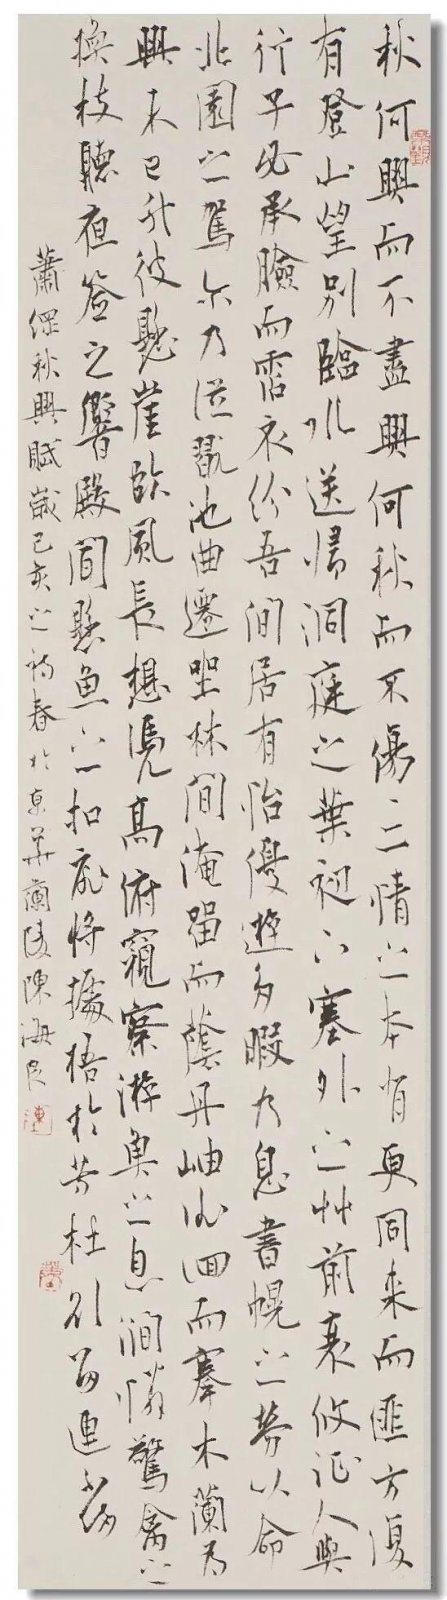 秋何興而不盡興何秋而不傷々二情之本背更同来而匪方復
有登山望別臨水送歸洞庭之葉初下塞外之艸前衰攸征人與
行子必承臉而霑衣紛吾間居有怡優遊多暇乃息書幌之勞以命
北園之駕尔乃從翫池曲遷坐林間淹留而蔭丹岫徘徊而搴木蘭為
興未已升彼懸崖臨風長想憑高俯窺察游魚之息澗憐驚禽之
換枝聽夜簽之響殿聞懸魚之扣扉將據梧於芳杜留連
蕭綱秋興賦歲己亥之初春於京華蘭陵陳海良